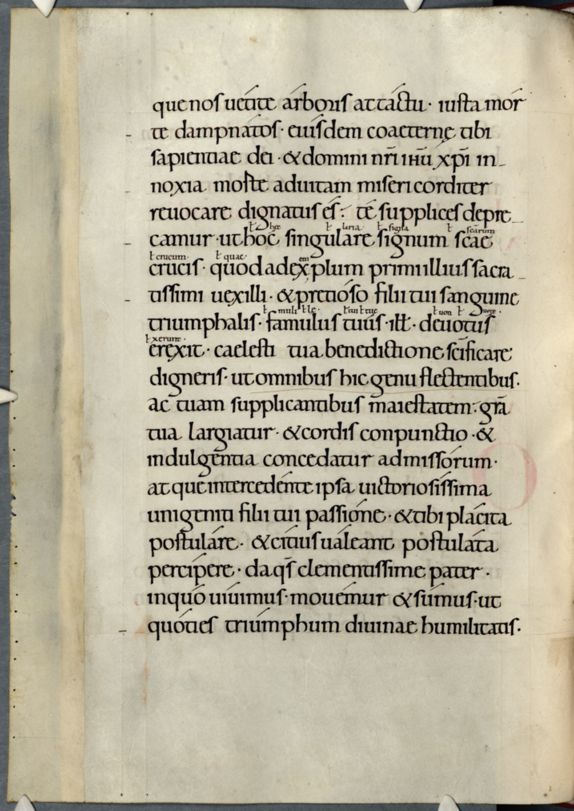 que nos uetite arboris attactu · iusta mor
te dampnatos · eiusdem coaeterne tibi
sapientiae dei · & domini nr̄i ih̄u xp̄i in-
noxia morte ad uitam misericorditer
reuocare dignatus es · te supplices depre-
camur · ut hoc singulare signum sc̄ae
ł hęc ł laria ł signa ł scarum
crucis · quod ad exemplum primi illius sacra
ł crucum ł quae
tissimi uexilli · & pretioso filii tui sanguine
triumphalis · famulus tuus · ill̄ · deuotus
ł muli ł le ł tui ł tue
erexit · caelesti tua benedictione sc̄ificare
ł xerunt
digneris · ut omnibus hic genu flectentibus ·
ac tuam supplicantibus maiestatem · gr̄a
tua largiatur · & cordis conpunctio · &
indulgentia concedatur admissorum ·
atque intercedente ipsa uictoriosissima
unigeniti filii tui passione · & tibi placita
postulare · & citius ualeant postulata
percipere · da qs̄ clementissime pater ·
in quo uiuimus · mouemur & sumus · ut
quoties triumphum diuinae humilitatis ·